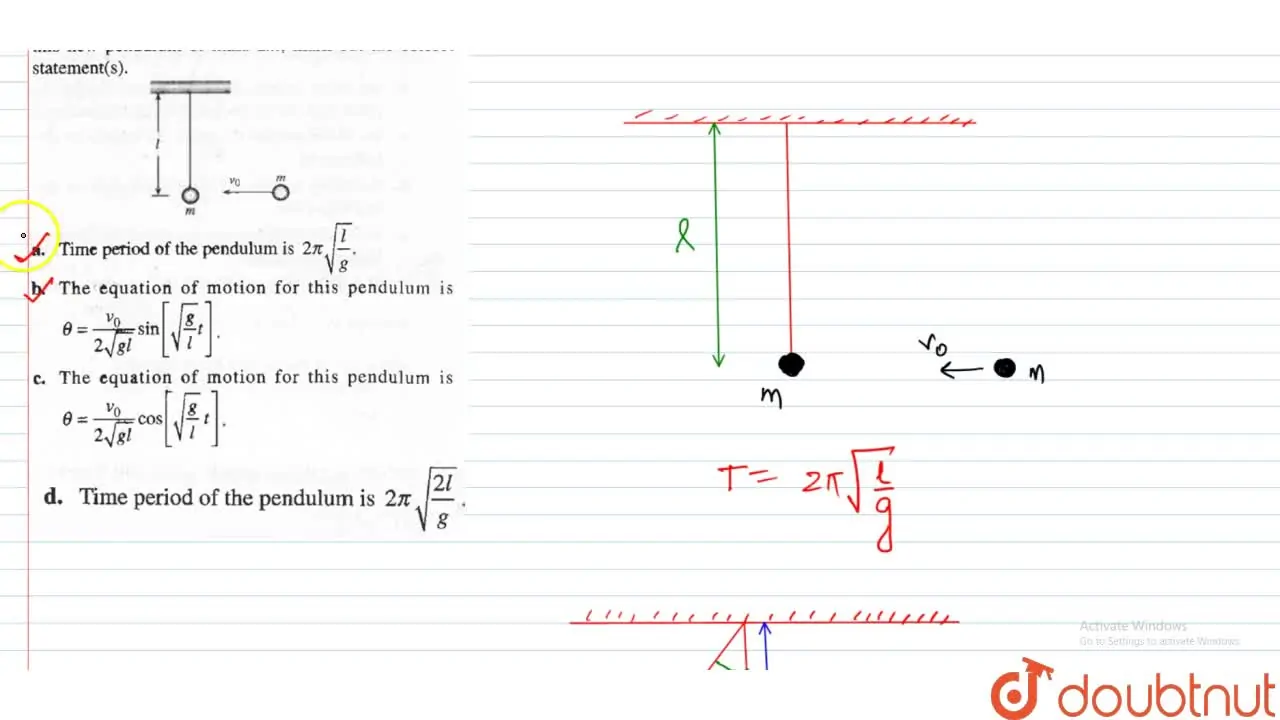 statement(s).
l
v₀
m
m
a. Time period of the pendulum is 2π√(l/g).
b. The equation of motion for this pendulum is
θ = v₀/(2√(gl)) sin[√(g/l) t].
c. The equation of motion for this pendulum is
θ = v₀/(2√(gl)) cos[√(g/l) t].
d. Time period of the pendulum is 2π√(2l/g).
l
v₀
m
m
T = 2π√(l/g)
Activate Windows
Go to Settings to activate Windows.
doubtnut